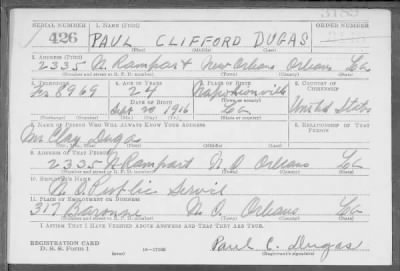 SERIAL NUMBER 1. NAME (Print) ORDER NUMBER
426 PAUL CLIFFORD DUGAS 3185
(First) (Middle) (Last)
2. ADDRESS (Print)
2335 N. Rampart New Orleans Orleans La
(Number and street or R. F. D. number) (Town) (County) (State)
3. TELEPHONE 4. AGE IN YEARS 5. PLACE OF BIRTH 6. COUNTRY OF CITIZENSHIP
Fr 8969 24 Napoleonville
DATE OF BIRTH (Town or county)
Sept 20 1916 La United States
(Mo.) (Day) (Yr.) (State or country)
7. NAME OF PERSON WHO WILL ALWAYS KNOW YOUR ADDRESS 8. RELATIONSHIP OF THAT PERSON
Mrs Clay Dugas
9. ADDRESS OF THAT PERSON
2335 N Rampart N. O Orleans La
(Number and street or R. F. D. number) (Town) (County) (State)
10. EMPLOYER'S NAME
N. O. Public Servic
11. PLACE OF EMPLOYMENT OR BUSINESS
317 Baronne N. O. Orleans La
(Number and street or R. F. D. number) (Town) (County) (State)
I AFFIRM THAT I HAVE VERIFIED ABOVE ANSWERS AND THAT THEY ARE TRUE.
REGISTRATION CARD
D. S. S. Form 1 (over) 16—17105 Paul C. Dugas
(Registrant's signature)